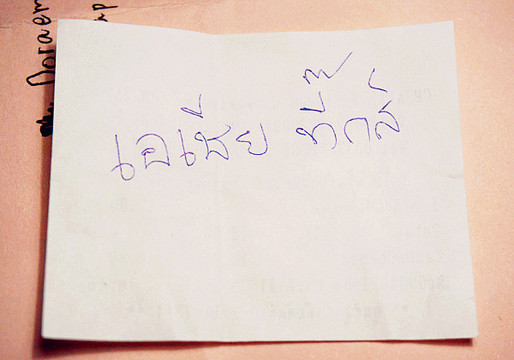 เอเชีย ที๊กส์
Doraem